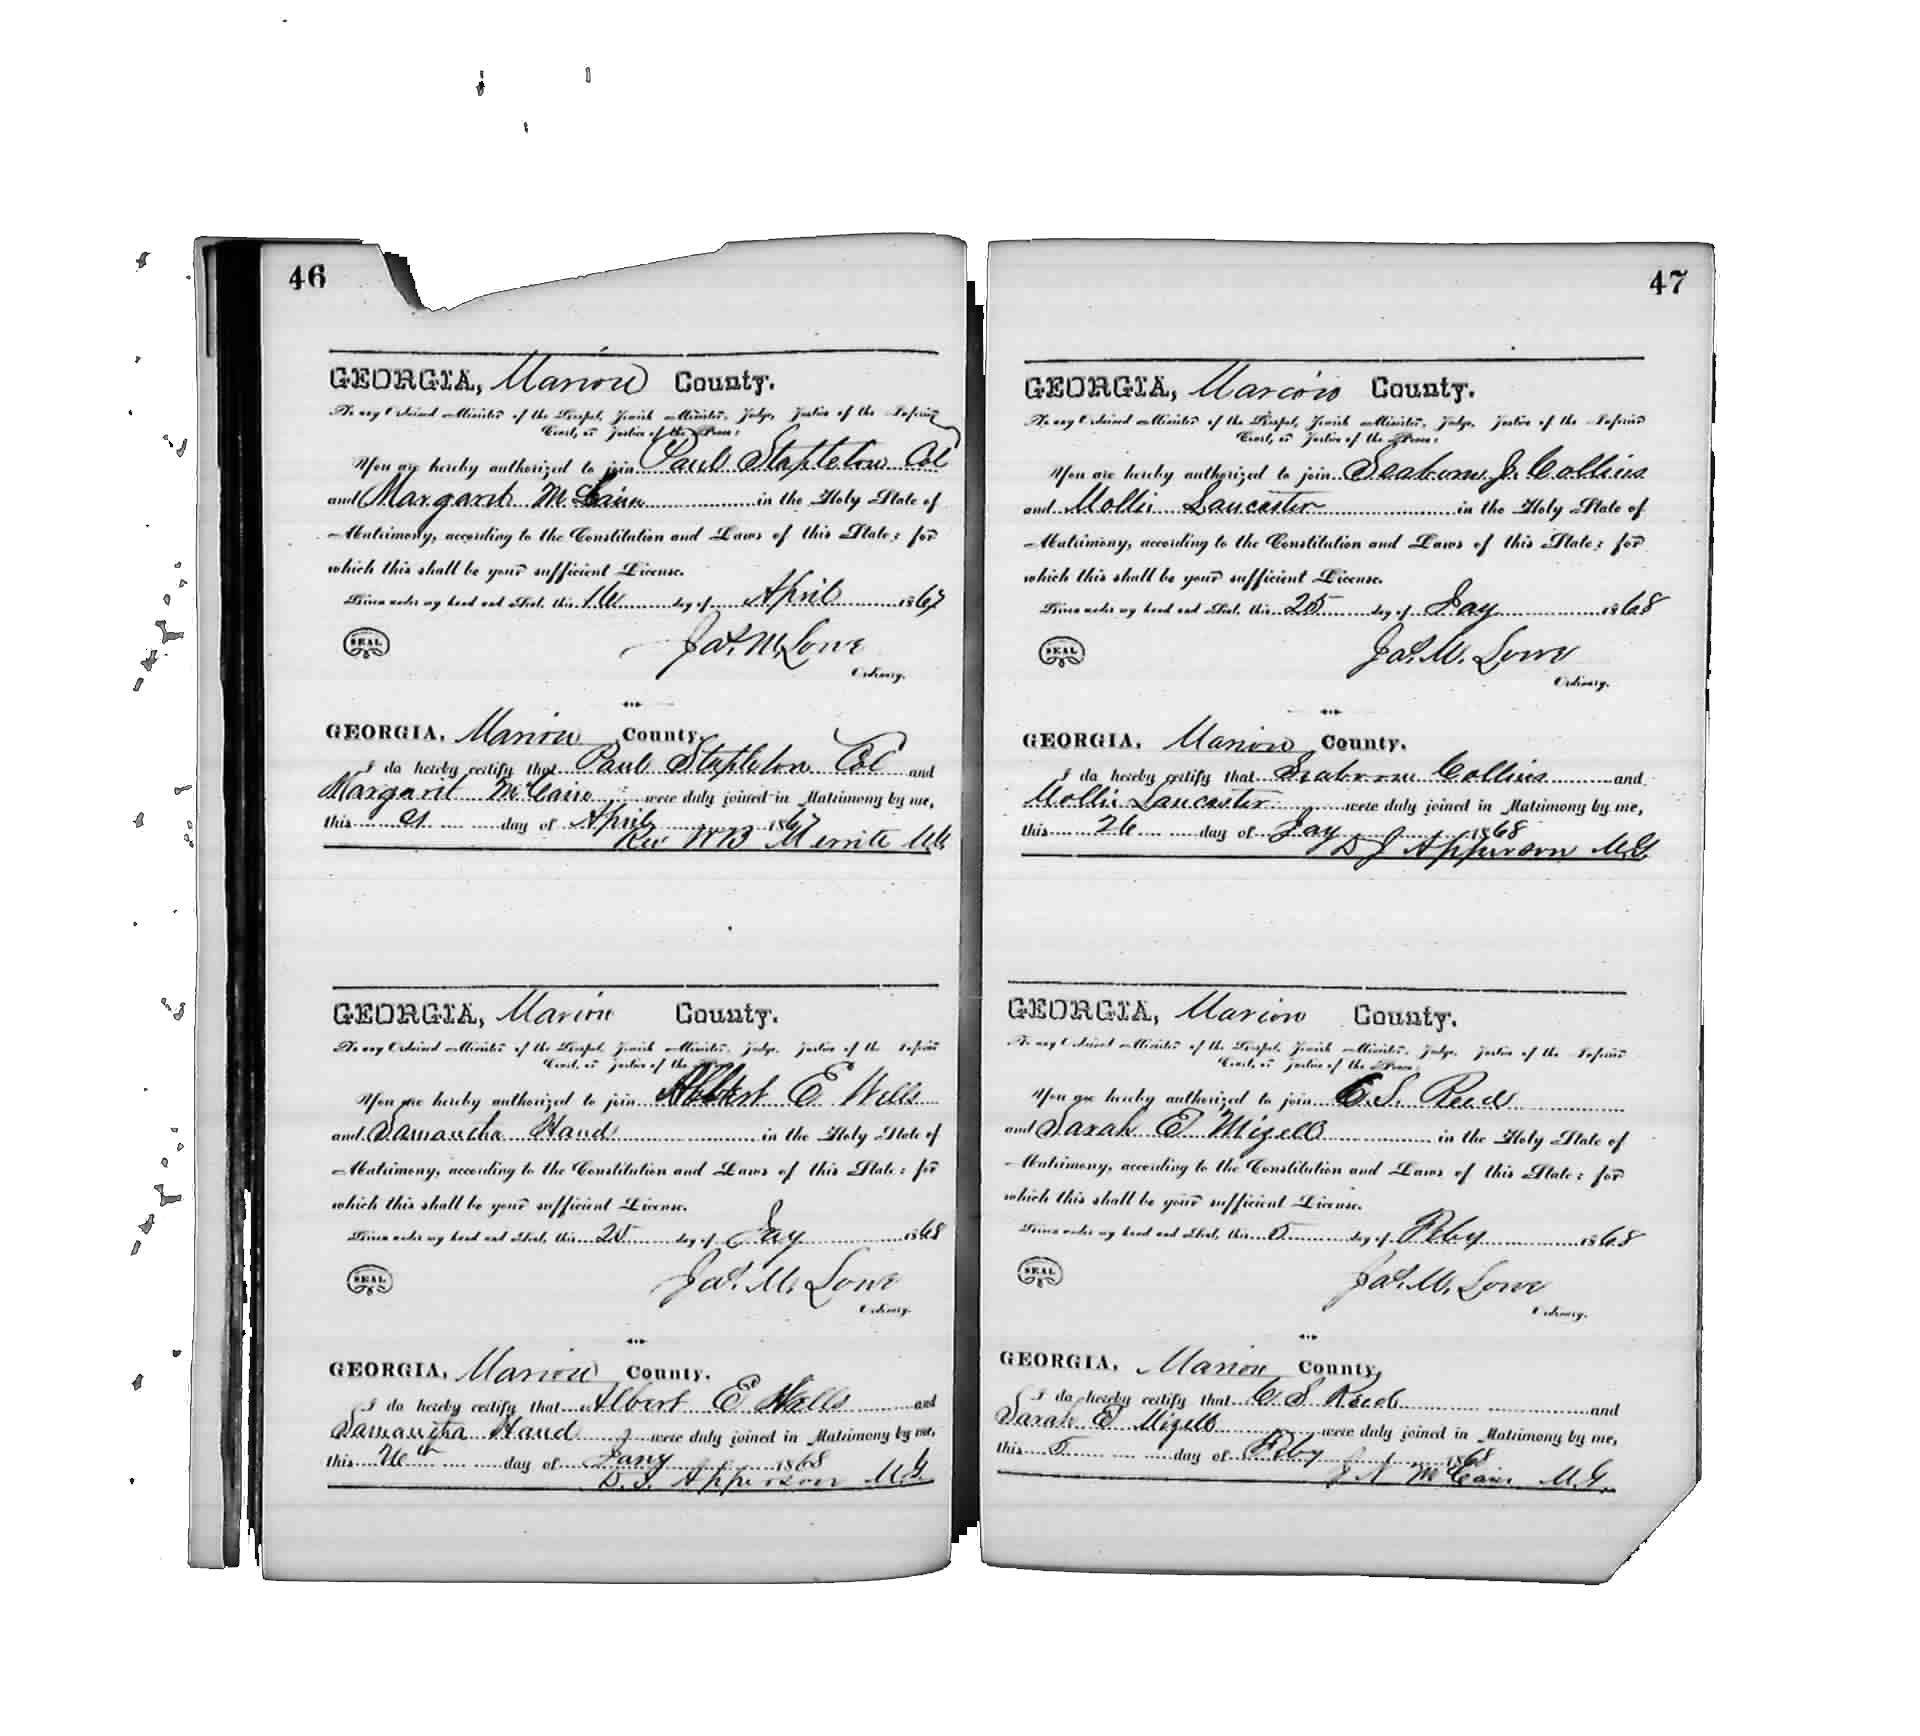 46
GEORGIA, Marion County.
To any Ordained Minister of the Gospel, Jewish Minister, Judge, Justice of the Inferior
Court, or Justice of the Peace:
You are hereby authorized to join Paul Stapleton Col
and Margarit McCain in the Holy State of
Matrimony, according to the Constitution and Laws of this State; for
which this shall be your sufficient License.
Given under my hand and Seal, this day of April 1867
SEAL Jas. M. Lowe
Ordinary.
GEORGIA, Marion County.
I do hereby certify that Paul Stapleton Col and
Margarit McCain were duly joined in Matrimony by me,
this day of April 1867
Rev WB Merritt
GEORGIA, Marion County.
To any Ordained Minister of the Gospel, Jewish Minister, Judge, Justice of the Inferior
Court, or Justice of the
You are hereby authorized to join Albert E Wells
and Samantha Hand in the Holy State of
Matrimony, according to the Constitution and Laws of this State; for
which this shall be your sufficient License.
Given under my hand and Seal, this 25 day of Jay 1868
SEAL Jas. M. Lowe
Ordinary.
GEORGIA, Marion County.
I do hereby certify that Albert E Wells and
Samantha Hand were duly joined in Matrimony by me,
this 26th day of Jany 1868
D. J. Apperson M.G.
47
GEORGIA, Marion County.
To any Ordained Minister of the Gospel, Jewish Minister, Judge, Justice of the Inferior
Court, or Justice of the Peace:
You are hereby authorized to join Seaborn J. Collins
and Mollie Lancaster in the Holy State of
Matrimony, according to the Constitution and Laws of this State; for
which this shall be your sufficient License.
Given under my hand and Seal, this 25 day of Jay 1868
SEAL Jas. M. Lowe
Ordinary.
GEORGIA, Marion County.
I do hereby certify that Seaborn Collins and
Mollie Lancaster were duly joined in Matrimony by me,
this 26 day of Jay 1868
D J Apperson M.G.
GEORGIA, Marion County.
To any Ordained Minister of the Gospel, Jewish Minister, Judge, Justice of the Inferior
Court, or Justice of the Peace:
You are hereby authorized to join C. S. Reed
and Sarah E Mizell in the Holy State of
Matrimony, according to the Constitution and Laws of this State; for
which this shall be your sufficient License.
Given under my hand and Seal, this 5 day of Feby 1868
SEAL Jas. M. Lowe
Ordinary.
GEORGIA, Marion County,
I do hereby certify that C S Reed and
Sarah E Mizell were duly joined in Matrimony by me,
this 5 day of Feby 1868
J N McCain M.G.